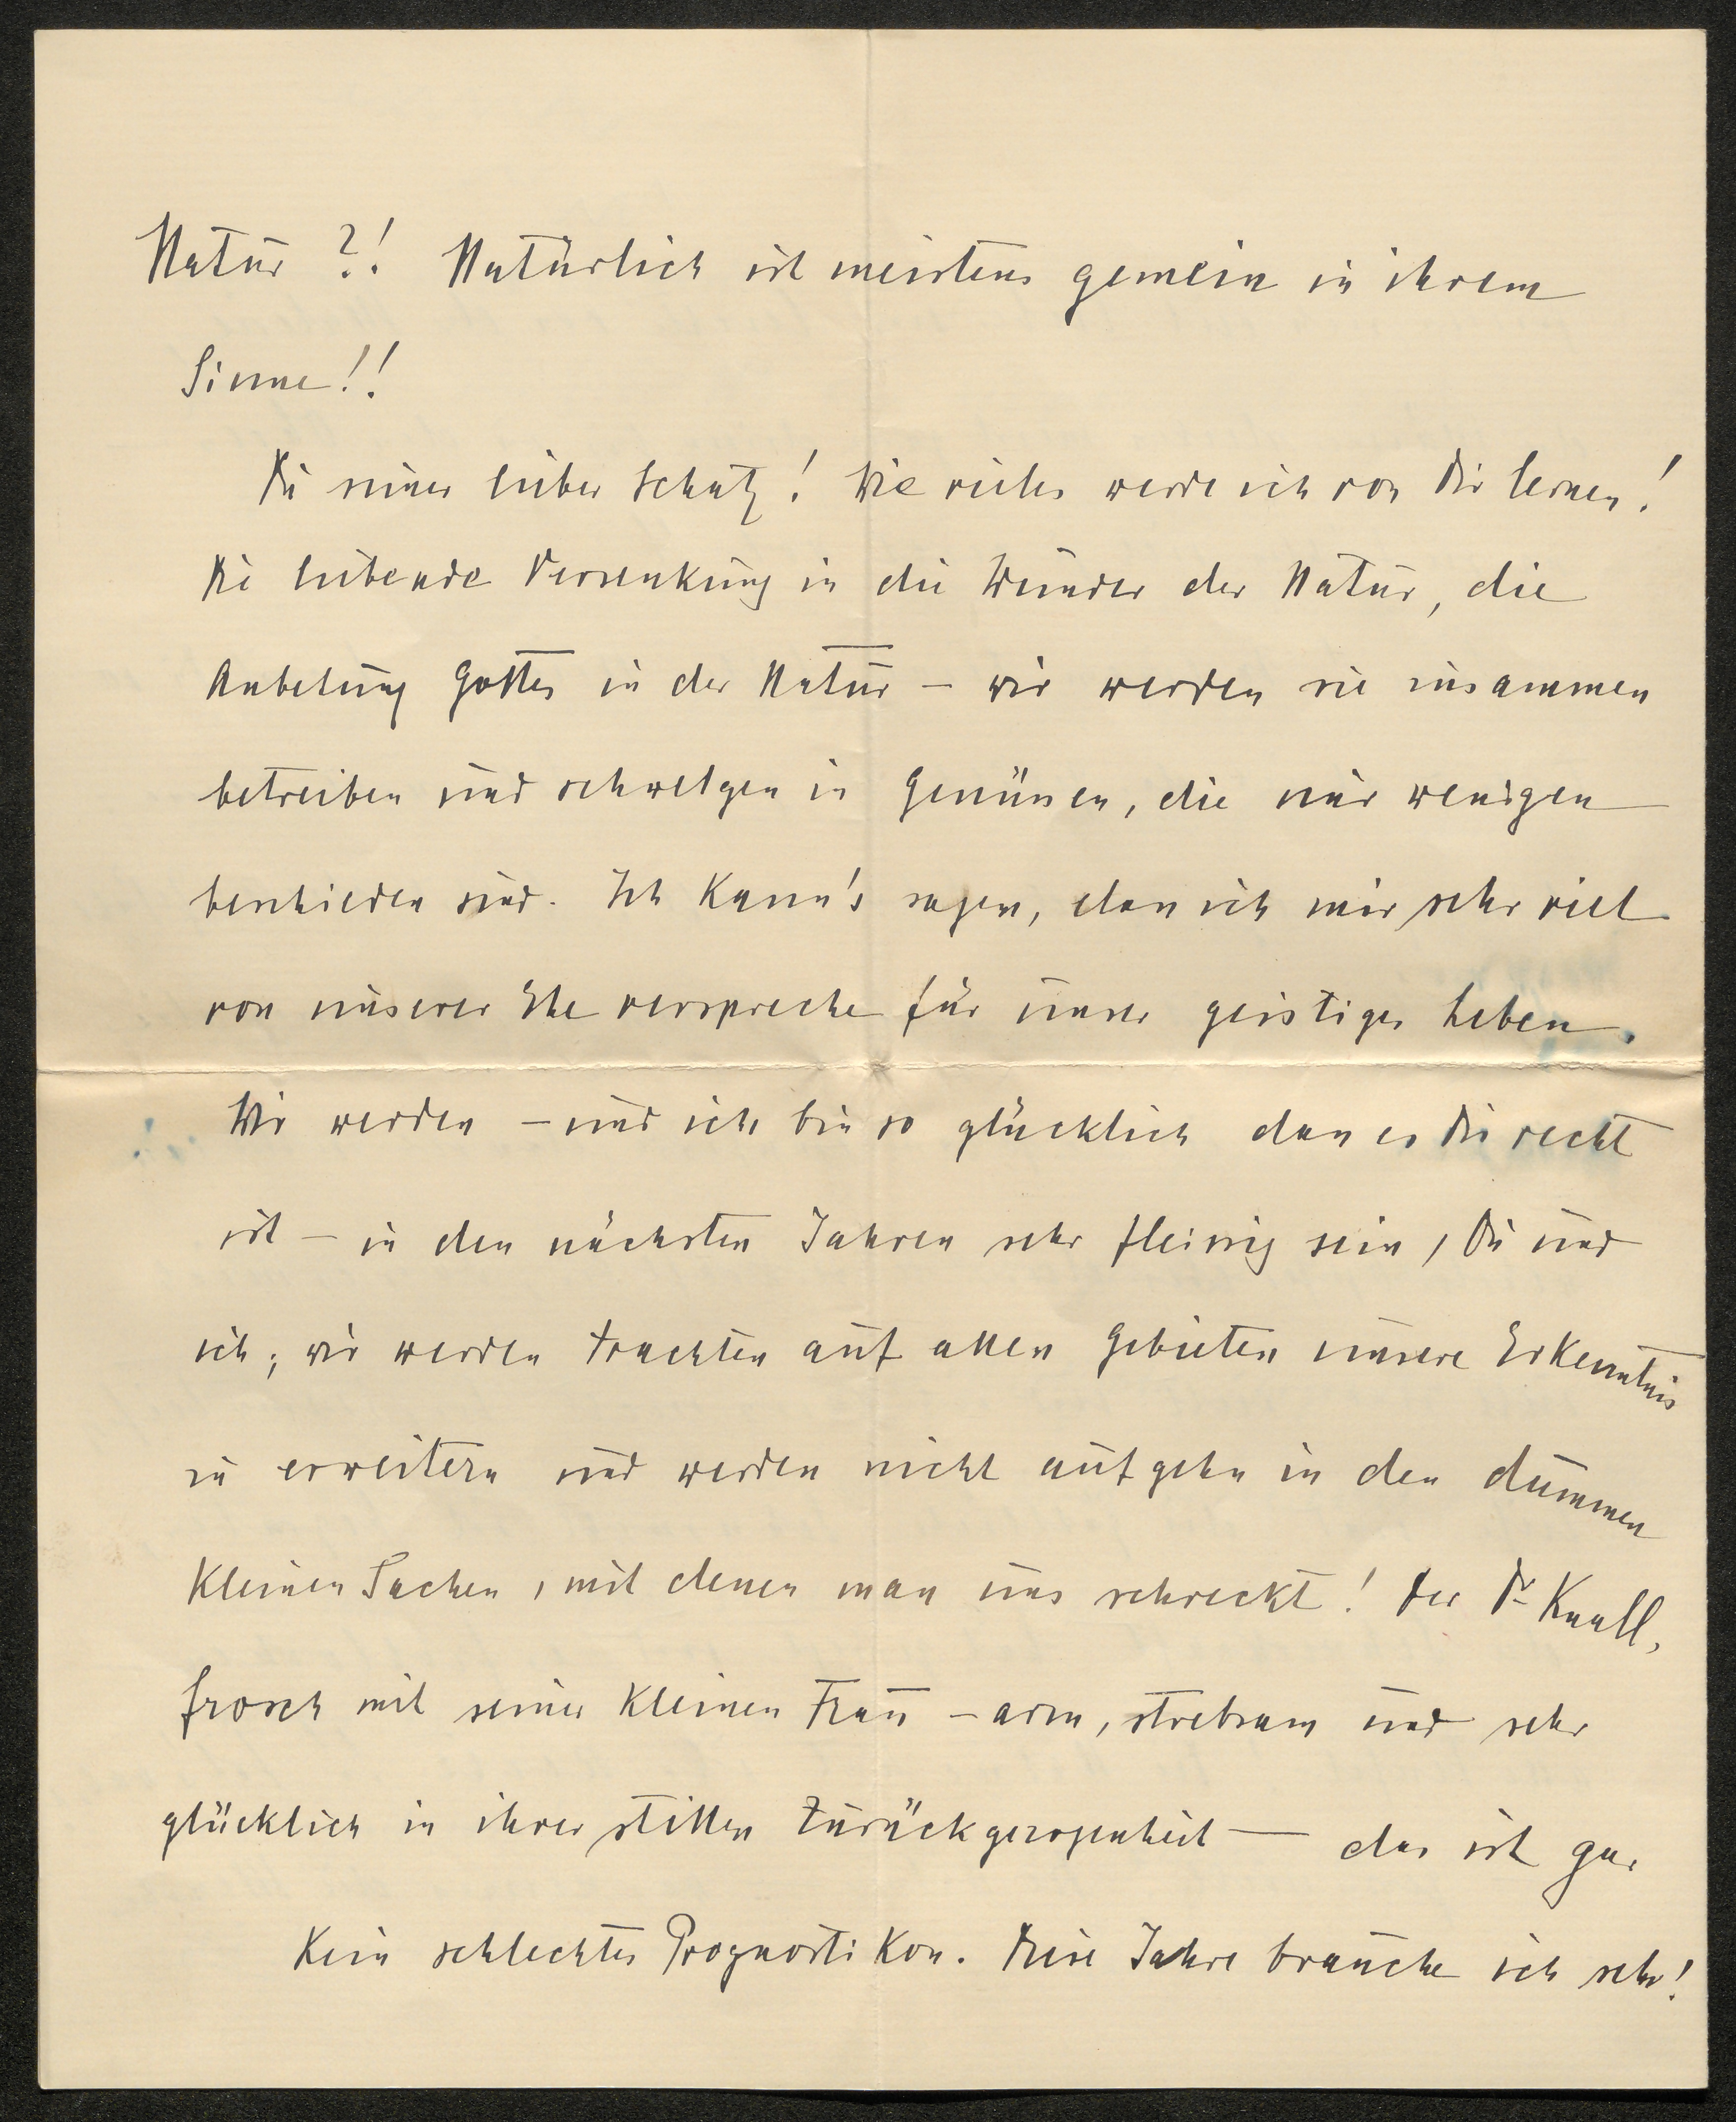 Natur ?! Natürlich ist meistens gemein in ihrem
Sinne!!
Du mein lieber Schatz! Wie vieles werde ich von Dir lernen!
Die liebende Versenkung in die Wunder der Natur, die
Anbetung Gottes in der Natur – wir werden sie zusammen
betreiben und schwelgen in Genüssen, die nur wenigen
beschieden sind. Ich kann's sagen, dass ich mir sehr viel
von unserer Ehe verspreche für unser geistiges Leben.
Wir werden – und ich bin so glücklich dass es Dir recht
ist – in den nächsten Jahren sehr fleissig sein, Du und
ich; wir werden trachten auf allen Gebieten unsere Erkenntnis
zu erweitern und werden nicht aufgehn in den dummen
kleinen Sachen, mit denen man uns schreckt! Der Dr Knall,
frosch mit seiner kleinen Frau – arm, strebsam und sehr
glücklich in ihrer stillen Zurückgezogenheit – das ist gar
kein schlechtes Prognostikon. Diese Jahre brauche ich sehr!